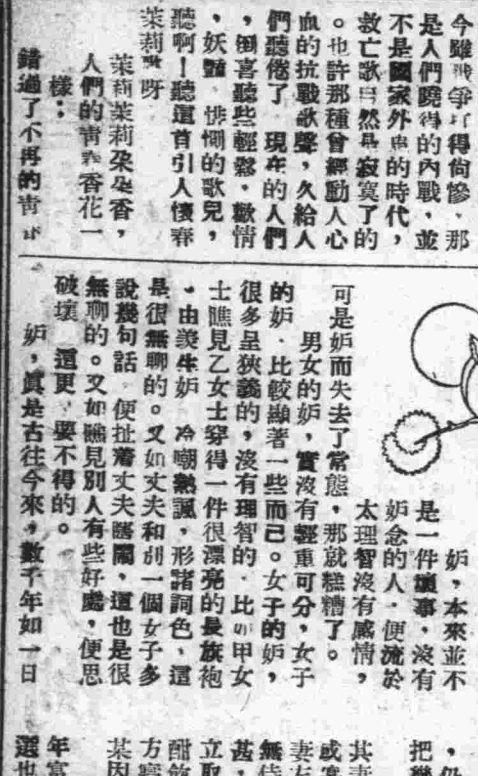 今雖戰爭打得尙慘，那
是人們曉得的內戰，並
不是國家外患的時代，
救亡歌曲然是寂寞了的
。也許那種曾經動人心
血的抗戰歌聲，久給人
們聽倦了 現在的人們
，倒喜聽些輕鬆，歡情
，妖豔 悱惻的歌兒，
聽啊！聽這首引人懷春
茉莉 呀
茉莉茉莉朶朶香，
人們的靑春香花一
樣：
錯過了不再的靑
妬，本來並不
是一件壞事，沒有
妬念的人，便流於
太理智沒有感情，
可是妬而失去了常態，那就糕糟了。
男女的妬，實沒有輕重可分，女子
的妬，比較顯著一些而已。女子的妬，
很多呈狹義的，沒有理智的，比如甲女
士瞧見乙女士穿得一件很漂亮的長旗袍
，由羨生妬 冷嘲熱諷，形諸詞色，這
是很無聊的。又如丈夫和別一個女子多
說幾句話 便扯着丈夫瞎鬧，這也是很
無聊的。又如瞧見別人有些好處，便思
破壞 這更 要不得的。
妬，眞是古往今來，數千年如一日
，仍
把
其
或
妻
無
甚，
立
酣
方
某因
年富
選也